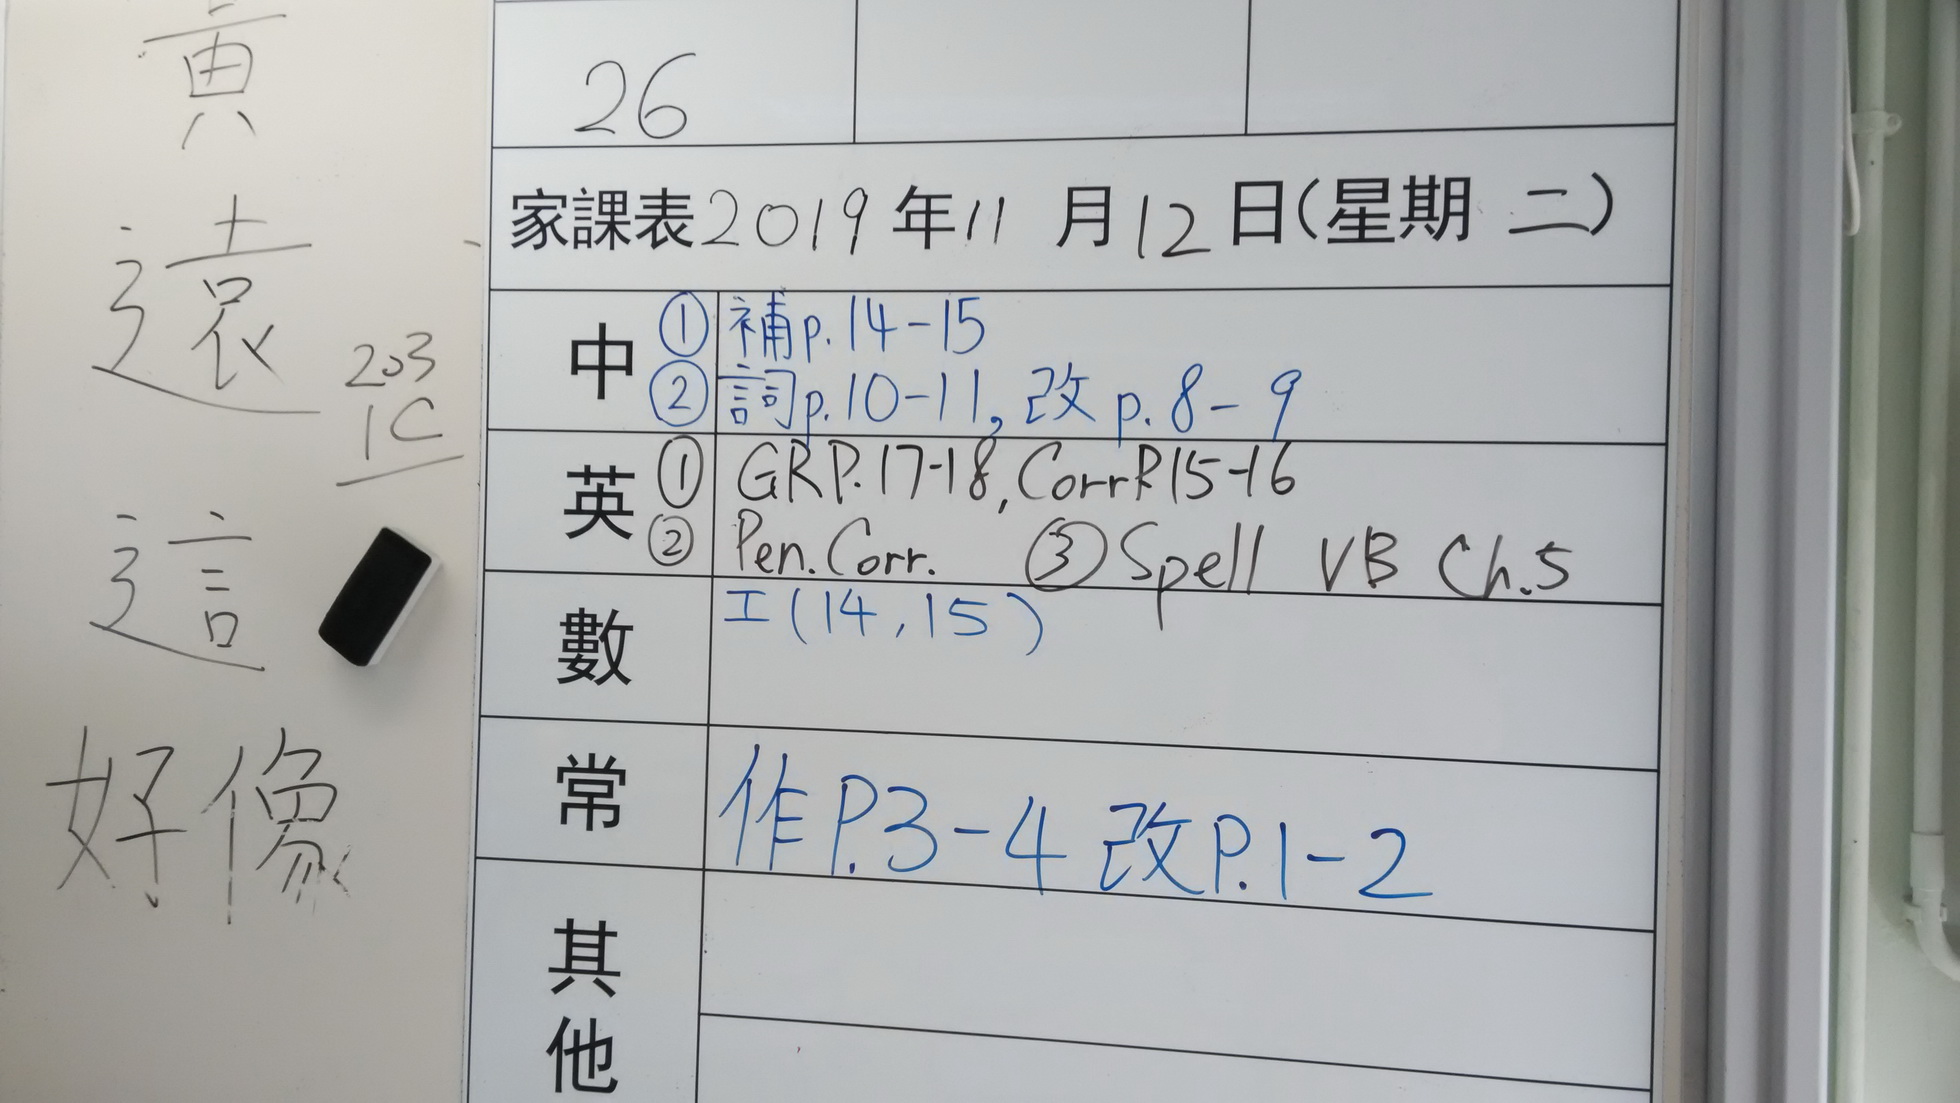 黃
遠
203
1C
這
好像
26
家課表2019年11月12日(星期二)
中 ① 補p.14-15
② 詞p.10-11, 改p.8-9
英 ① GRP.17-18, Corr P.15-16
② Pen. Corr. ③ Spell VB Ch.5
數 工(14,15)
常 作P.3-4 改P.1-2
其他